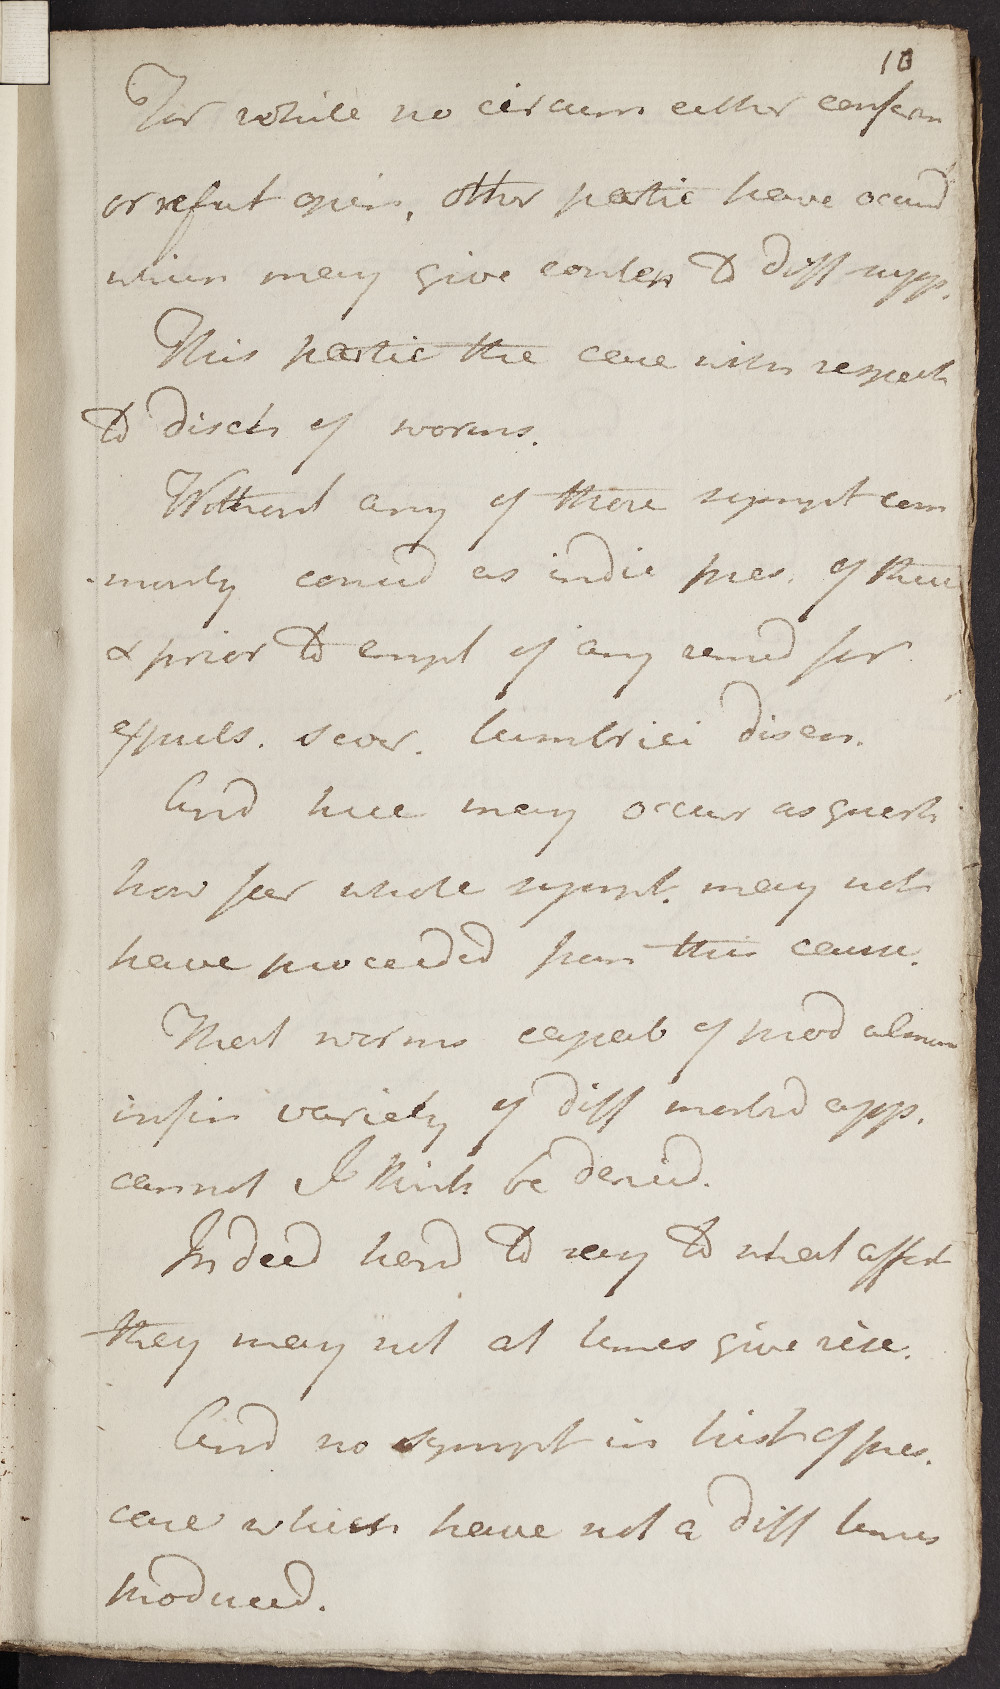 10
For while no circum either confirm
or refut opin, other partic have occurd
which may give conten to diff supp.
This partic the case with respect
to disch of worms.
Without any of those sympt com
monly consid as indic pres. of these
& prior to empl of any remed for
expuls. sever. lumbrici disch.
And here may occur as quest
how far whole sympt. may not
have proceeded from this cause.
That worms capab of prod almost
infin variety of diff morbid app.
cannot I think be denied.
Indeed hard to say to what affect
they may not at times give rise.
And no sympt in hist of pres.
case which have not a diff times
produced.